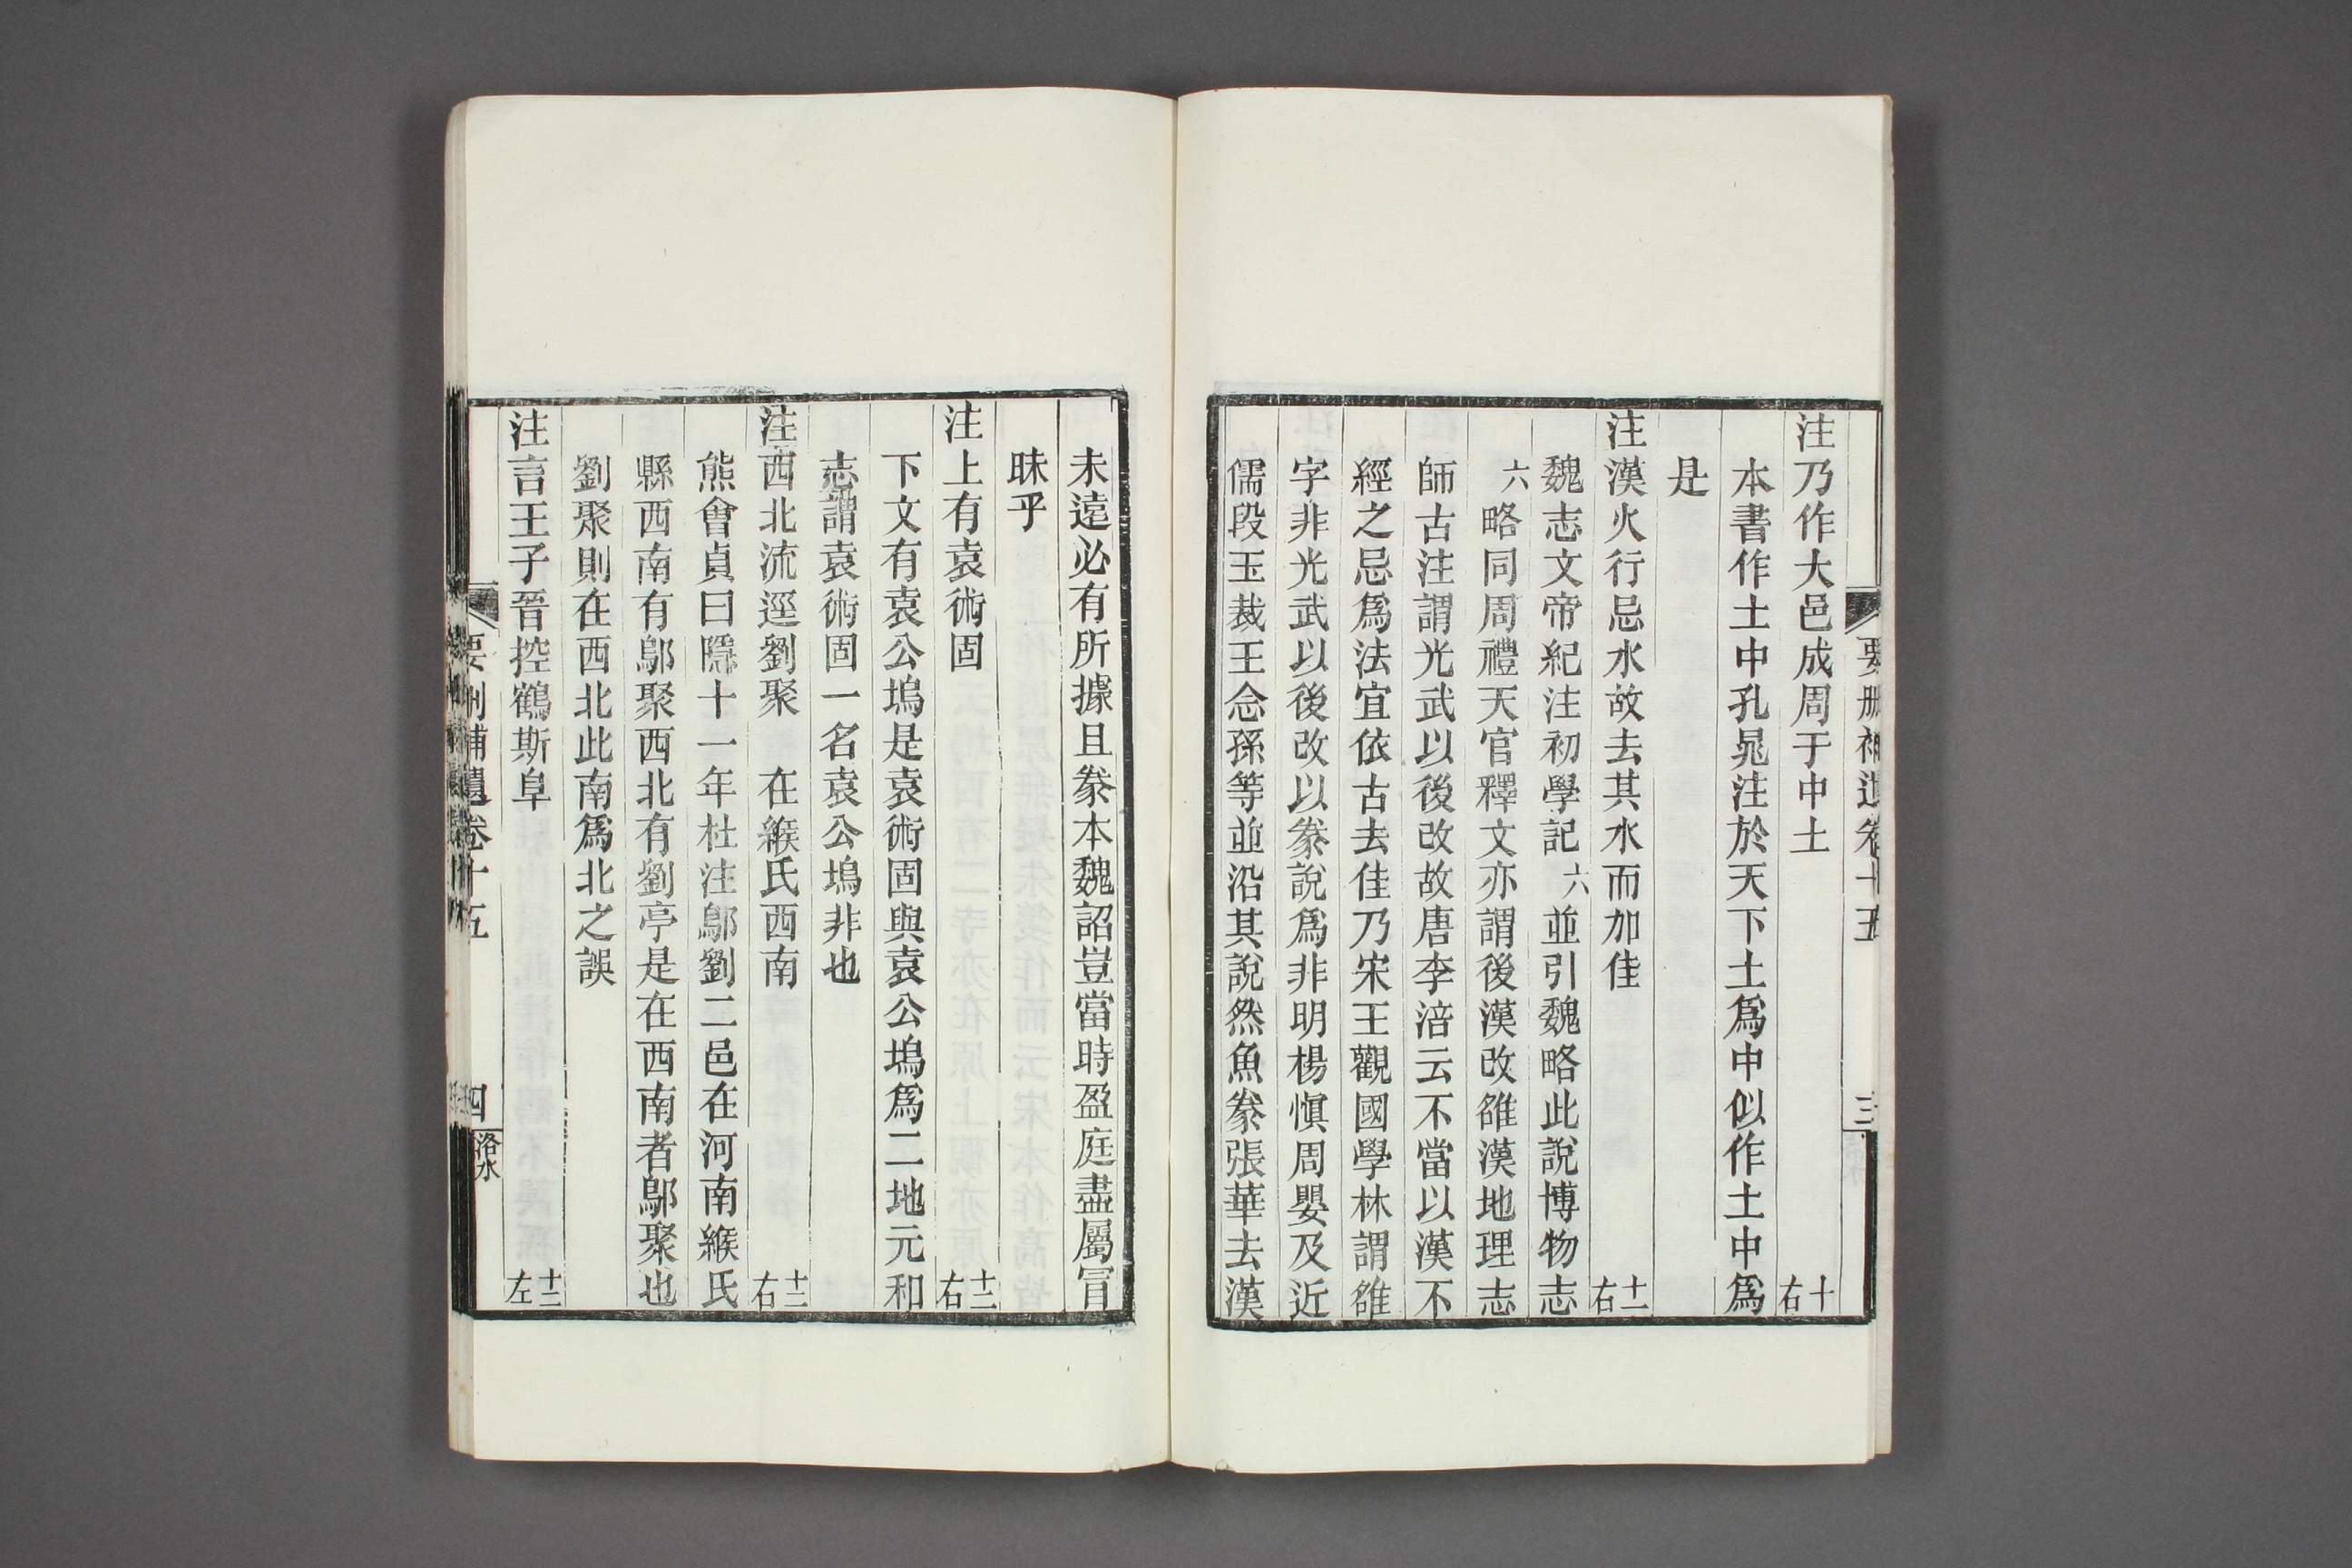 要刪補遺卷十五
三
注乃作大邑成周于中土 十右
本書作土中孔晁注於天下土爲中似作土中爲
是
注漢火行忌水故去其水而加佳 十一右
魏志文帝紀注初學記六並引魏略此說博物志
六略同周禮天官釋文亦謂後漢改雒漢地理志
師古注謂光武以後改故唐李涪云不當以漢不
經之忌爲法宜依古去佳乃宋王觀國學林謂雒
字非光武以後改以豢說爲非明楊愼周嬰及近
儒段玉裁王念孫等並沿其說然魚豢張華去漢
未遠必有所據且豢本魏詔豈當時盈庭盡屬冐
昧乎
注上有袁術固 十二右
下文有袁公塢是袁術固與袁公塢爲二地元和
志謂袁術固一名袁公塢非也
注西北流逕劉聚 在緱氏西南 十二右
熊會貞曰隱十一年杜注鄔劉二邑在河南緱氏
縣西南有鄔聚西北有劉亭是在西南者鄔聚也
劉聚則在西北此南爲北之誤
注言王子晉控鶴斯阜 十二左
要刪補遺卷十五
四
洛水